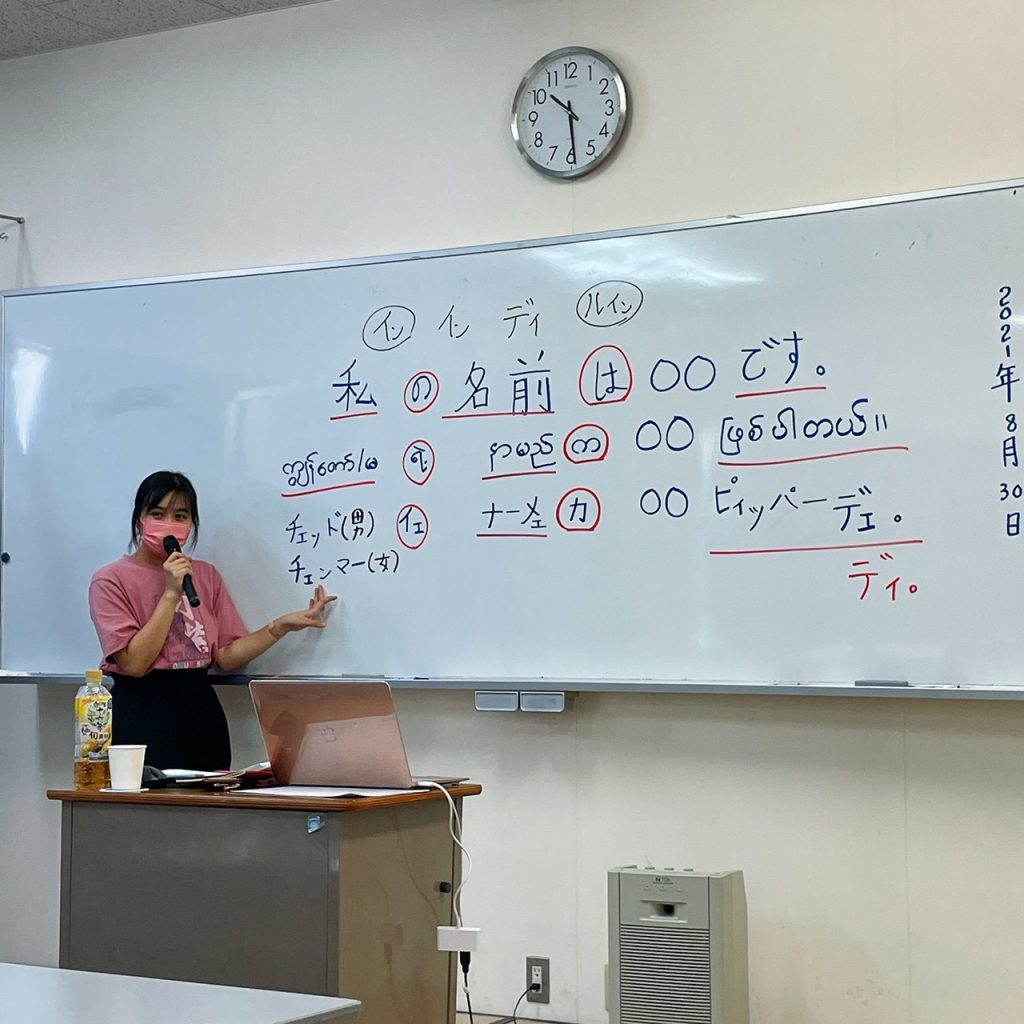 イン イン ディ ルイン
私 の 名前 は 〇〇 です。
ကျွန်တော်/မ ရဲ့ နာမည် က 〇〇 ဖြစ်ပါတယ်။
チェッド(男) イェ ナーメェ カ 〇〇 ピィッパーデェ。
チェンマー(女)
ディ。
2021年8月30日
12
1
2
3
4
5
6
7
8
9
10
11